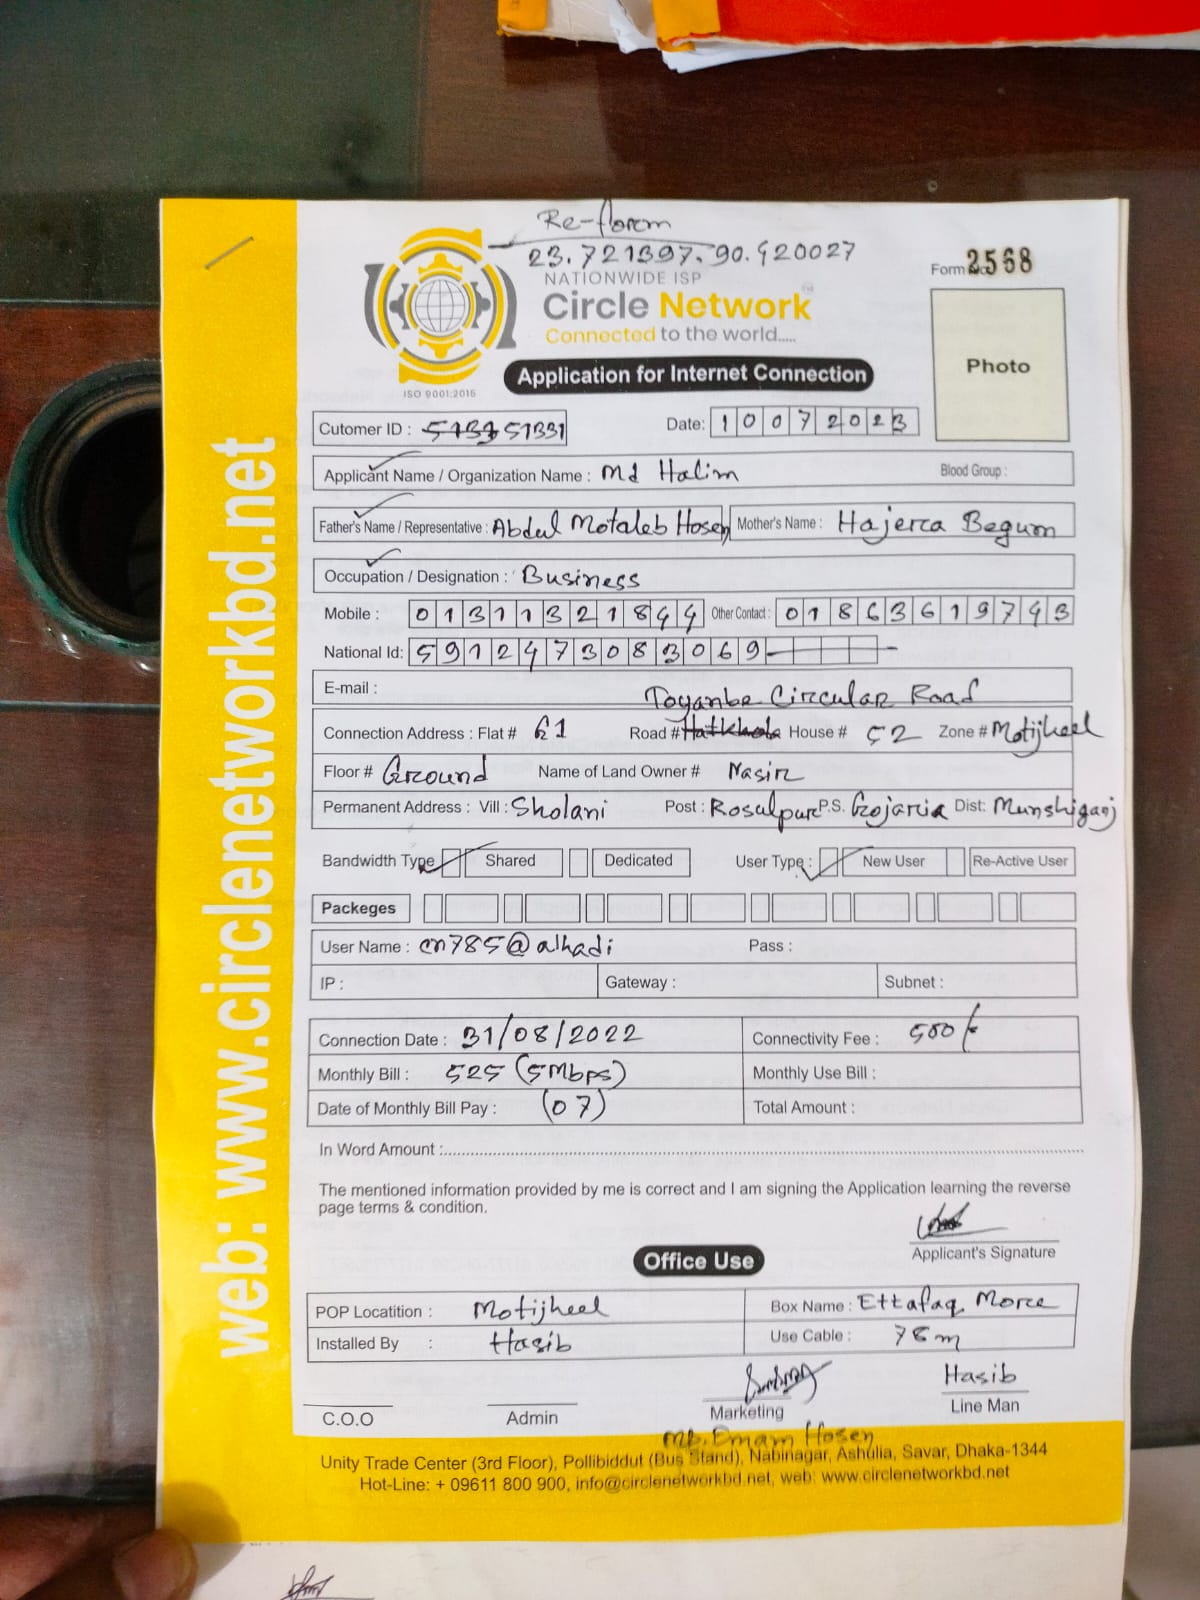 Re-florem
23.721397, 90.420027
NATIONWIDE ISP
Circle Network
Connected to the world.....
ISO 9001:2015
Form No. 2568
Photo
Application for Internet Connection
Cutomer ID : 51331
Date: 10072023
Applicant Name / Organization Name : Md Halim Blood Group :
Father's Name / Representative : Abdul Motaleb Hosen Mother's Name : Hajera Begum
Occupation / Designation : Business
Mobile : 01311321844 Other Contact : 01863619743
National Id: 5912473083069
E-mail :
Toyanbe Circular Road
Connection Address : Flat # G1 Road # Hatkhola House # 52 Zone # Motijheel
Floor # Ground Name of Land Owner # Nasir
Permanent Address : Vill : Sholani Post : Rosulpur P.S. Gojaria Dist: Munshiganj
Bandwidth Type Shared Dedicated User Type : New User Re-Active User
Packeges
User Name : cn785@alhadi Pass :
IP : Gateway : Subnet :
Connection Date : 31/08/2022 Connectivity Fee : 500/-
Monthly Bill : 525 (5Mbps) Monthly Use Bill :
Date of Monthly Bill Pay : (07) Total Amount :
In Word Amount :
The mentioned information provided by me is correct and I am signing the Application learning the reverse
page terms & condition.
Applicant's Signature
Office Use
POP Locatition : Motijheel Box Name : Ettafaq More
Installed By : Hasib Use Cable : 78m
Hasib
C.O.O Admin Marketing Line Man
MD. Emam Hosen
Unity Trade Center (3rd Floor), Pollibiddut (Bus Stand), Nabinagar, Ashulia, Savar, Dhaka-1344
Hot-Line: + 09611 800 900, info@circlenetworkbd.net, web: www.circlenetworkbd.net
web: www.circlenetworkbd.net